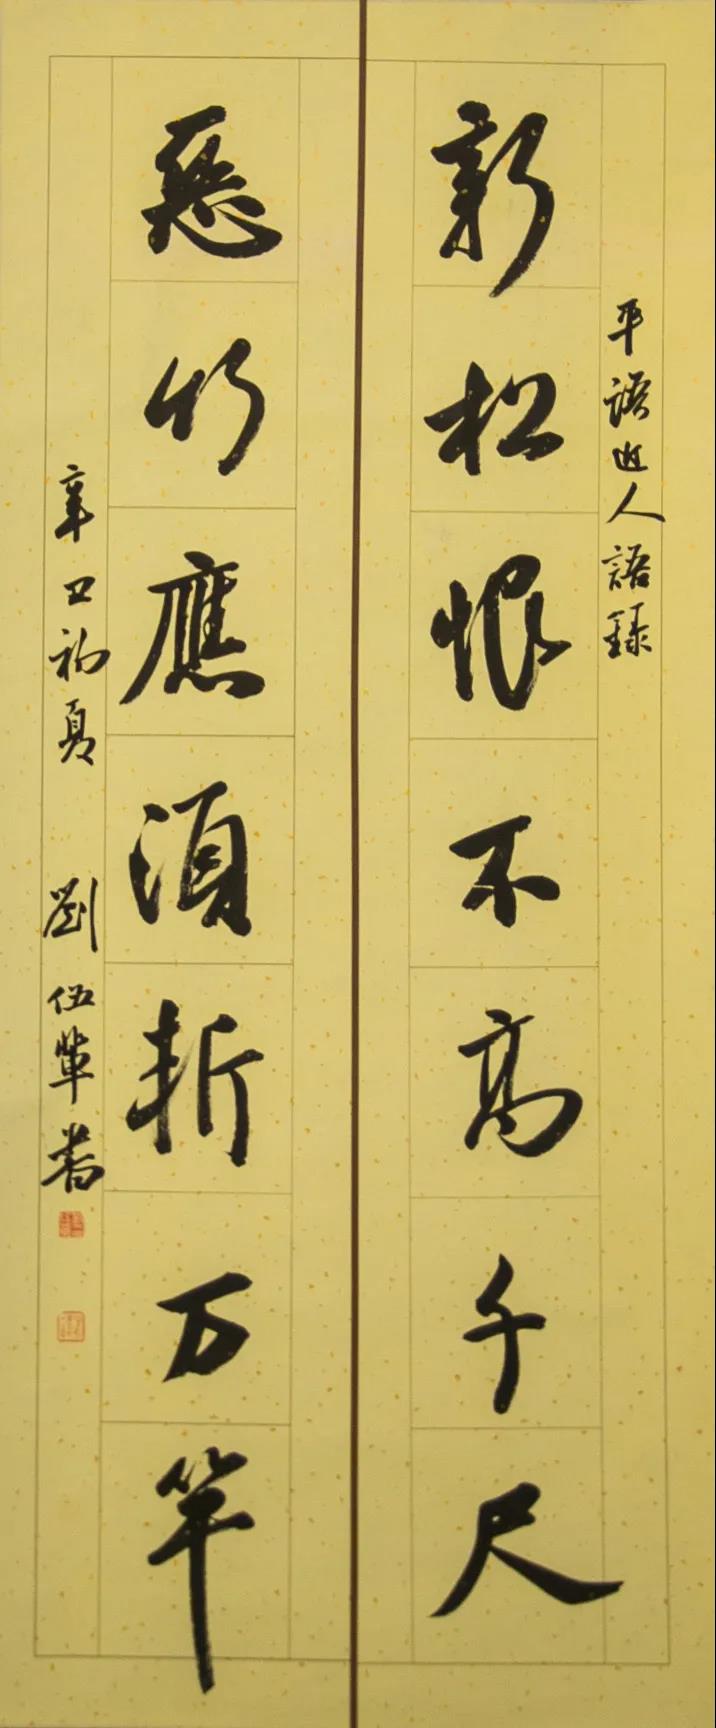 平語近人語録
新松恨不高千尺
惡竹應須折万竿
辛丑初夏 劉伍輩書